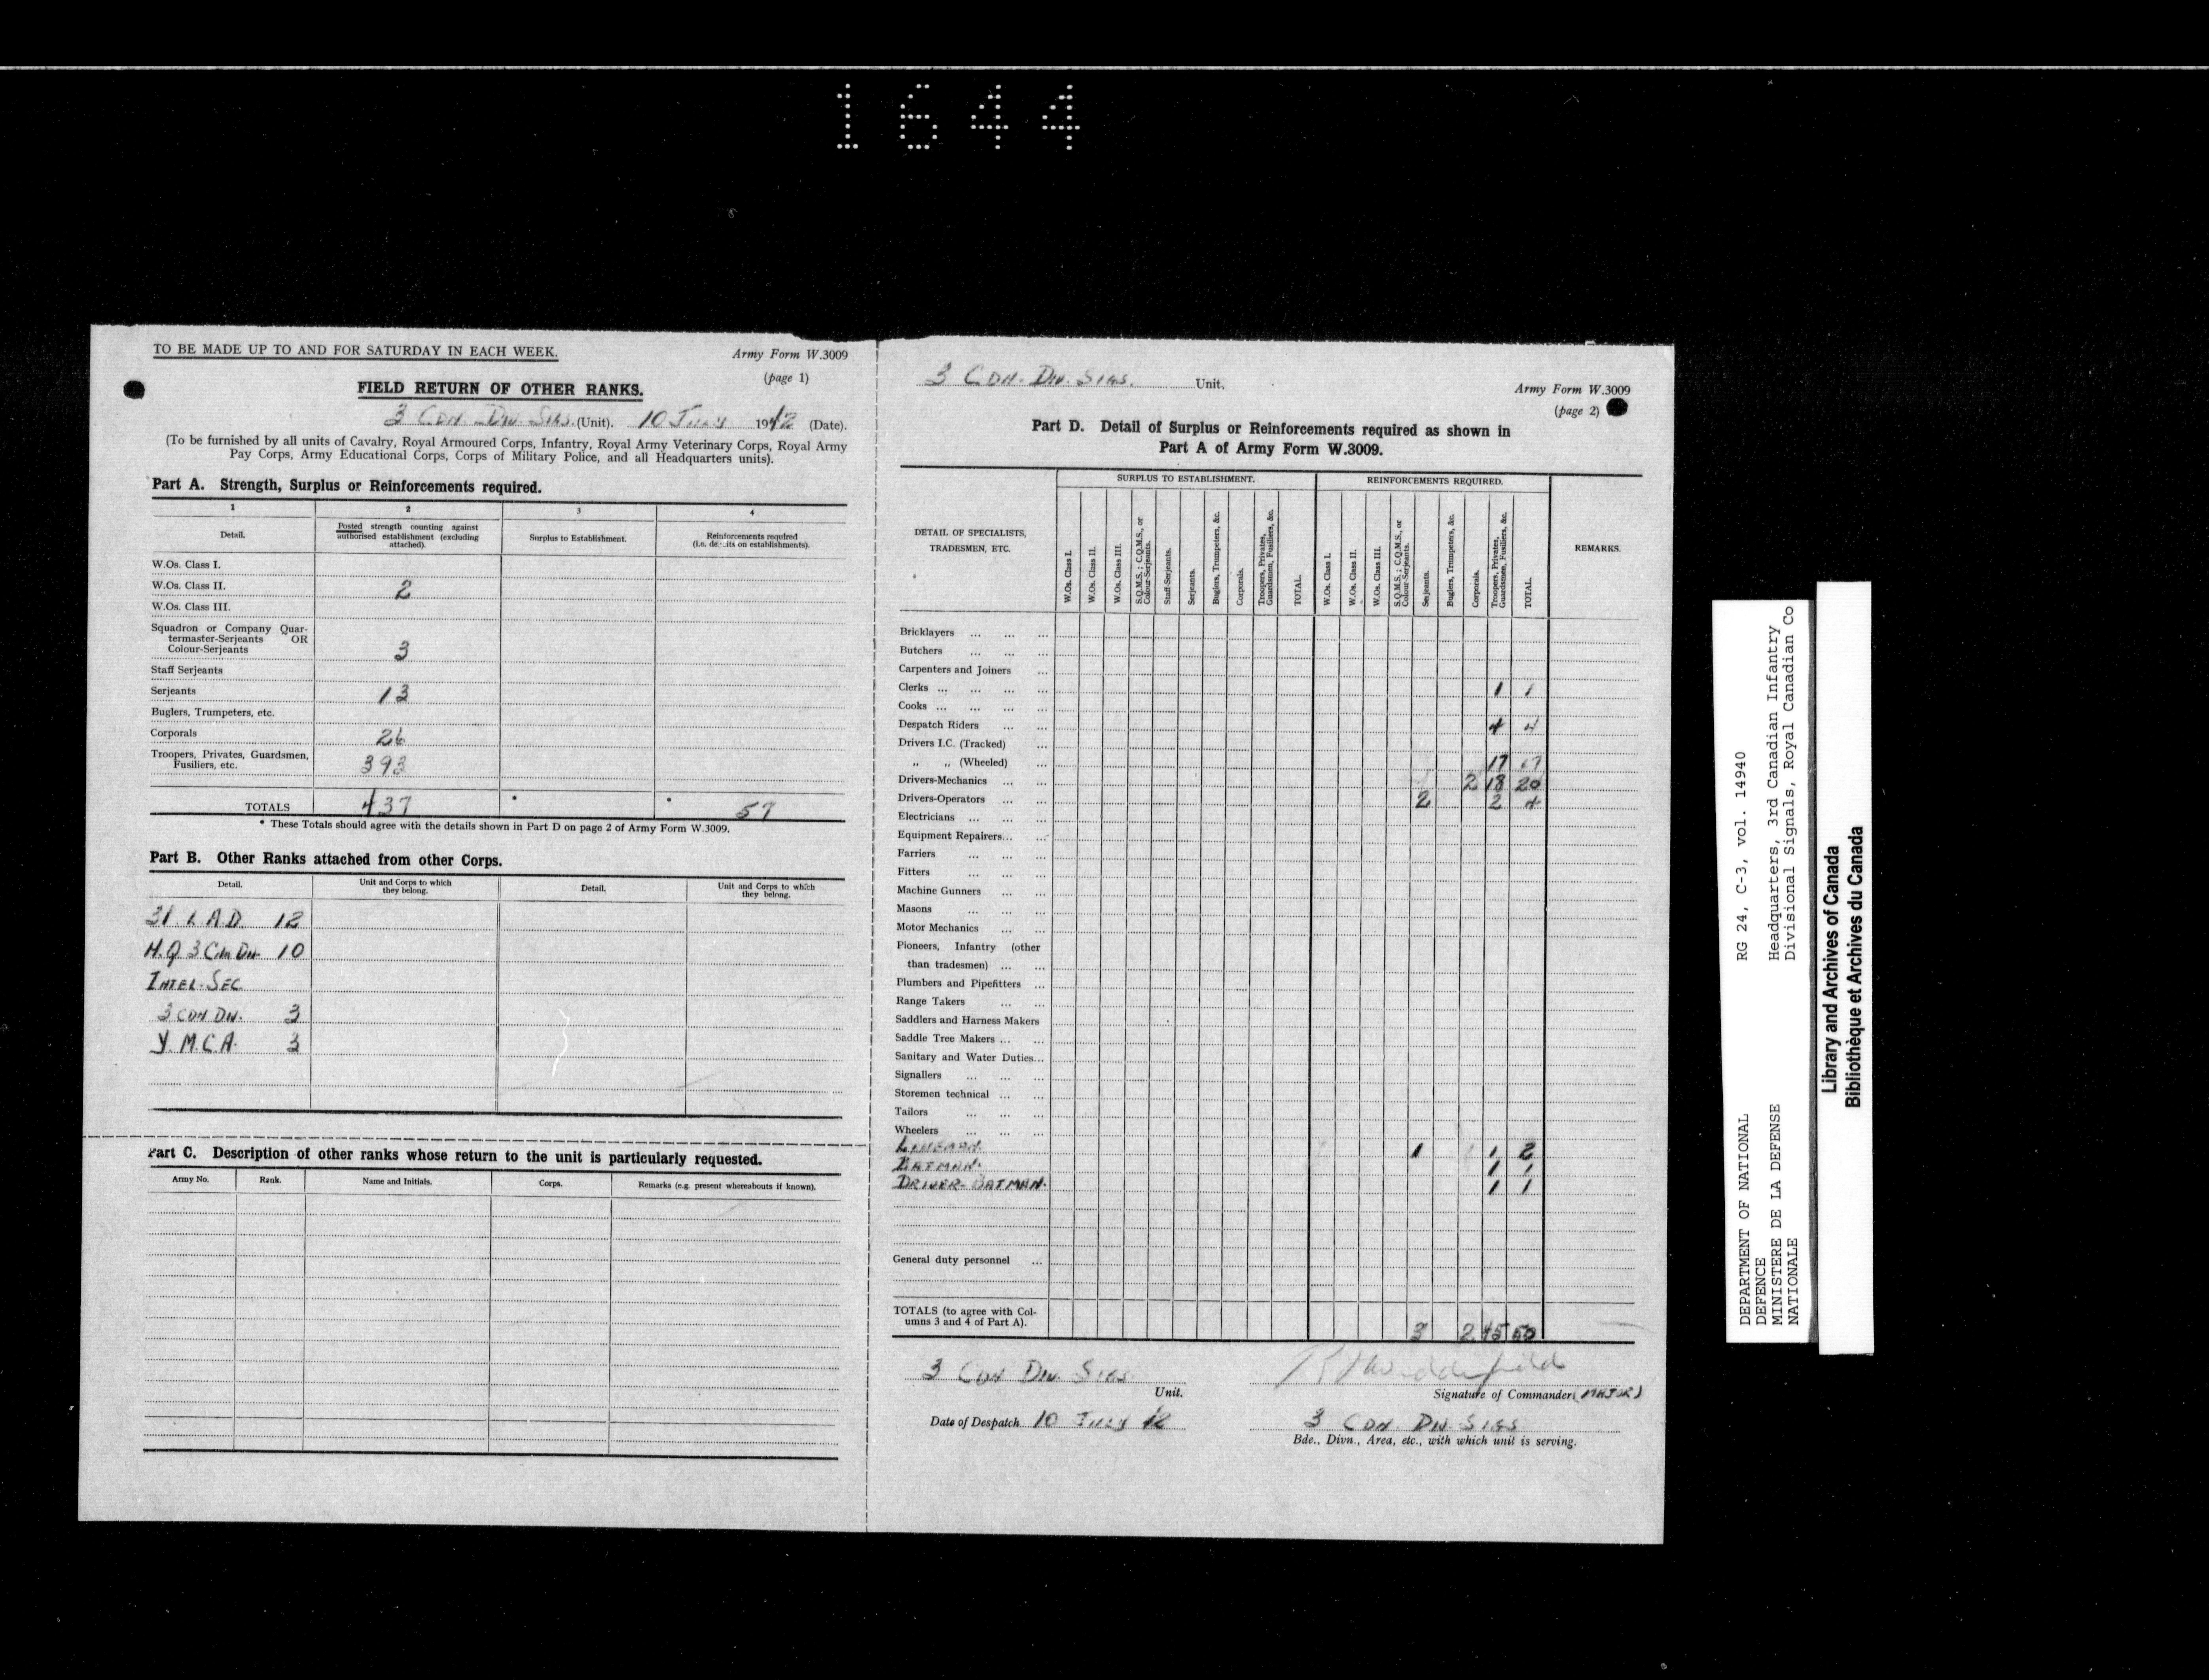 1644
TO BE MADE UP TO AND FOR SATURDAY IN EACH WEEK.
Army Form W.3009
(page 1)
FIELD RETURN OF OTHER RANKS.
3 CDN DIV. SIGS. (Unit). 10 JULY 1942 (Date).
(To be furnished by all units of Cavalry, Royal Armoured Corps, Infantry, Royal Army Veterinary Corps, Royal Army
Pay Corps, Army Educational Corps, Corps of Military Police, and all Headquarters units).
Part A. Strength, Surplus or Reinforcements required.
1 2 3 4
Detail.
Posted strength counting against
authorised establishment (excluding
attached).
Surplus to Establishment.
Reinforcements required
(i.e. deficits on establishments).
W.Os. Class I.
W.Os. Class II. 2
W.Os. Class III.
Squadron or Company Quar-
termaster-Serjeants OR
Colour-Serjeants 3
Staff Serjeants
Serjeants 13
Buglers, Trumpeters, etc.
Corporals 26
Troopers, Privates, Guardsmen,
Fusiliers, etc. 393
TOTALS 437 * * 57
* These Totals should agree with the details shown in Part D on page 2 of Army Form W.3009.
Part B. Other Ranks attached from other Corps.
Detail.
Unit and Corps to which
they belong.
Detail.
Unit and Corps to which
they belong.
31 L.A.D. 12
H.Q 3 CDN DIV. 10
INTEL. SEC.
3 CDN DIV. 3
Y.M.C.A. 3
Part C. Description of other ranks whose return to the unit is particularly requested.
Army No. Rank. Name and Initials. Corps. Remarks (e.g. present whereabouts if known).
3 CDN. DIV. SIGS. Unit.
Army Form W.3009
(page 2)
Part D. Detail of Surplus or Reinforcements required as shown in
Part A of Army Form W.3009.
DETAIL OF SPECIALISTS,
TRADESMEN, ETC.
SURPLUS TO ESTABLISHMENT.
W.Os. Class I.
W.Os. Class II.
W.Os. Class III.
S.Q.M.S.; C.Q.M.S., or
Colour-Serjeants.
Staff-Serjeants.
Serjeants.
Buglers, Trumpeters, &c.
Corporals.
Troopers, Privates,
Guardsmen, Fusiliers, &c.
TOTAL.
REINFORCEMENTS REQUIRED.
W.Os. Class I.
W.Os. Class II.
W.Os. Class III.
S.Q.M.S.; C.Q.M.S., or
Colour-Serjeants.
Serjeants.
Buglers, Trumpeters, &c.
Corporals.
Troopers, Privates,
Guardsmen, Fusiliers, &c.
TOTAL.
REMARKS.
Bricklayers ... ... ...
Butchers ... ... ...
Carpenters and Joiners ...
Clerks ... ... ... ... 1 1
Cooks ... ... ... ...
Despatch Riders ... ... 4 4
Drivers I.C. (Tracked) ...
„ „ (Wheeled) ... 17 17
Drivers-Mechanics ... ... 2 18 20
Drivers-Operators ... ... 2 2 4
Electricians ... ... ...
Equipment Repairers... ...
Farriers ... ... ...
Fitters ... ... ...
Machine Gunners ... ...
Masons ... ... ...
Motor Mechanics ... ...
Pioneers, Infantry (other
than tradesmen) ... ...
Plumbers and Pipefitters ...
Range Takers ... ...
Saddlers and Harness Makers
Saddle Tree Makers ... ...
Sanitary and Water Duties...
Signallers ... ... ...
Storemen technical ... ...
Tailors ... ... ...
Wheelers ... ... ...
LINEMAN. 1 1 2
BATMAN. 1 1
DRIVER-BATMAN. 1 1
General duty personnel ...
TOTALS (to agree with Col-
umns 3 and 4 of Part A). 3 2 45 50
3 CDN DIV. SIGS.
Unit.
Signature of Commander (MAJOR)
Date of Despatch 10 JULY 42
3 CDN. DIV. SIGS
Bde., Divn., Area, etc., with which unit is serving.
DEPARTMENT OF NATIONAL
DEFENCE
MINISTERE DE LA DEFENSE
NATIONALE
RG 24, C-3, vol. 14940
Headquarters, 3rd Canadian Infantry
Divisional Signals, Royal Canadian Co
Library and Archives of Canada
Bibliothèque et Archives du Canada